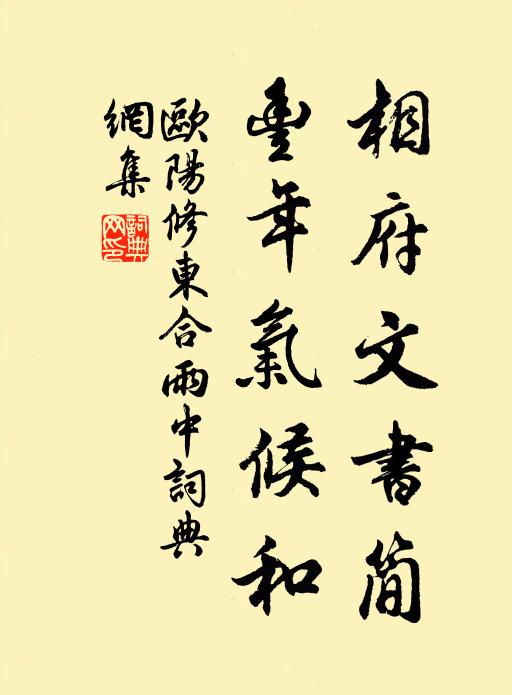 相府文書簡
豊年氣候和
歐陽修東合雨中詞典
網集
詞典網印